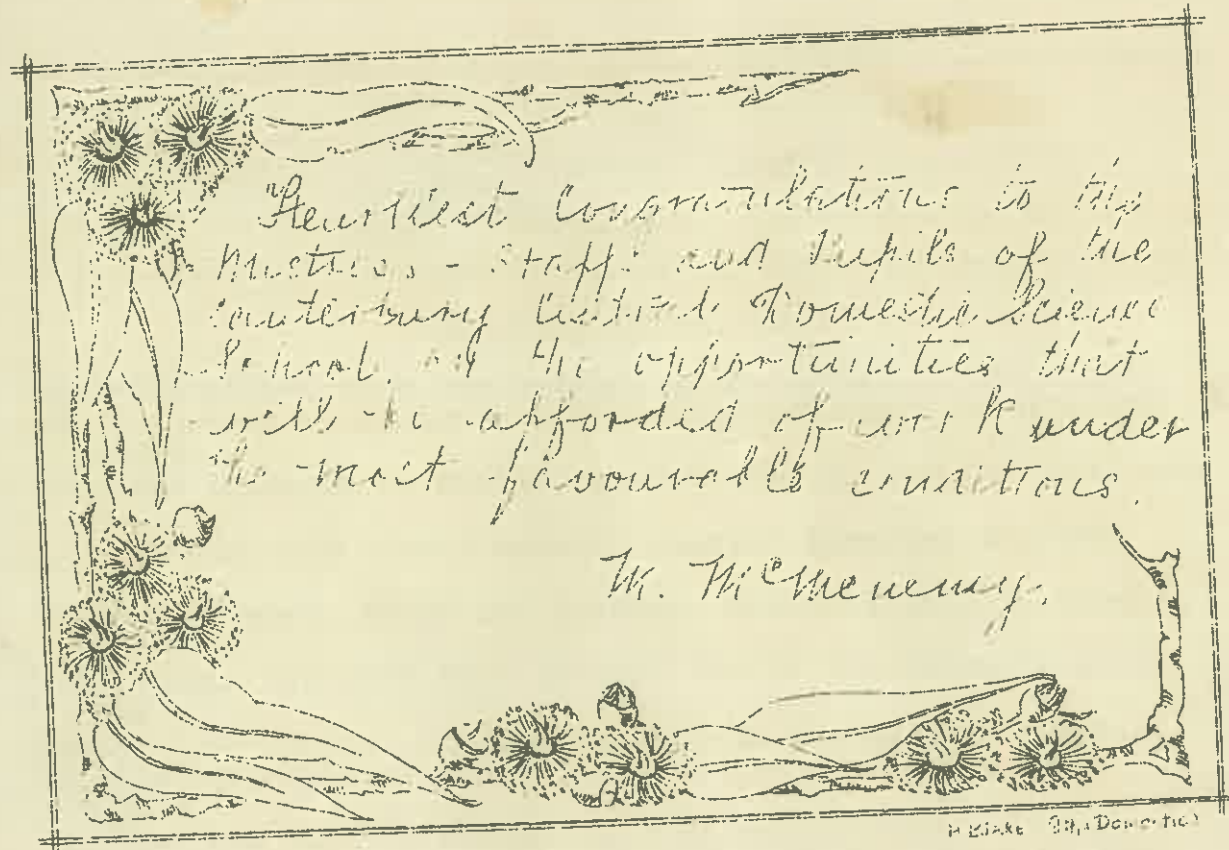 "Heartiest Congratulations to the
Mistress - Staff and Pupils of the
Canterbury Central Domestic Science
School, on the opportunities that
will be afforded of work under
the most favourable conditions.
M. McMenemy.
H Blake (Domestic)